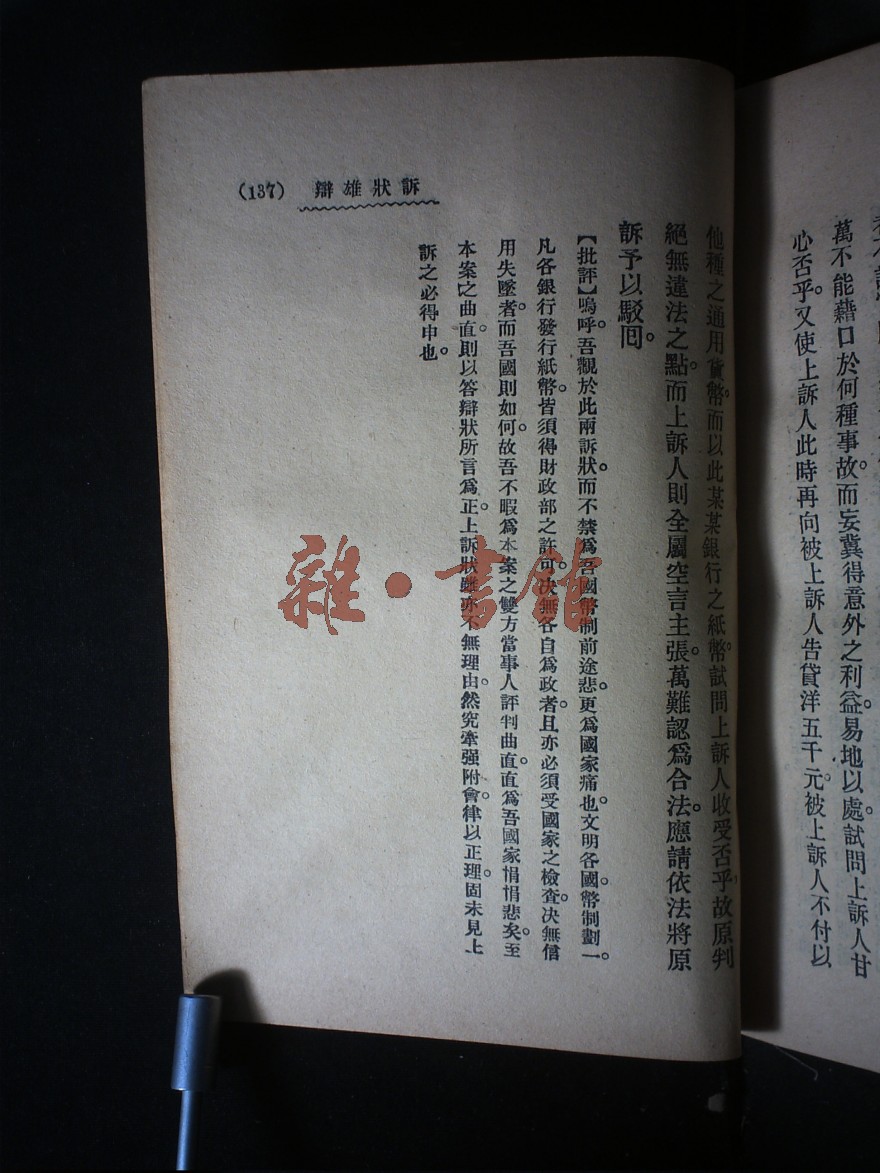 萬不能藉口於何種事故。而妄冀得意外之利益。易地以處。試問上訴人甘
心否乎。又使上訴人此時再向被上訴人告貸洋五千元。被上訴人不付以
訴狀雄辯 (137)
他種之通用貨幣。而以此某某銀行之紙幣。試問上訴人收受否乎。故原判
絕無違法之點。而上訴人則全屬空言主張。萬難認爲合法。應請依法將原
訴予以駁回。
【批評】嗚呼。吾觀於此兩訴狀。而不禁爲吾國幣制前途悲。更爲國家痛也。文明各國。幣制劃一。
凡各銀行發行紙幣。皆須得財政部之許可。决無各自爲政者。且亦必須受國家之檢查。决無信
用失墜者。而吾國則如何。故吾不暇爲本案之雙方當事人評判曲直。直爲吾國家悁悁悲矣。至
本案之曲直。則以答辯狀所言爲正。上訴狀雖亦不無理由。然究牽强附會。律以正理。固未見上
訴之必得申也。
雜·書館